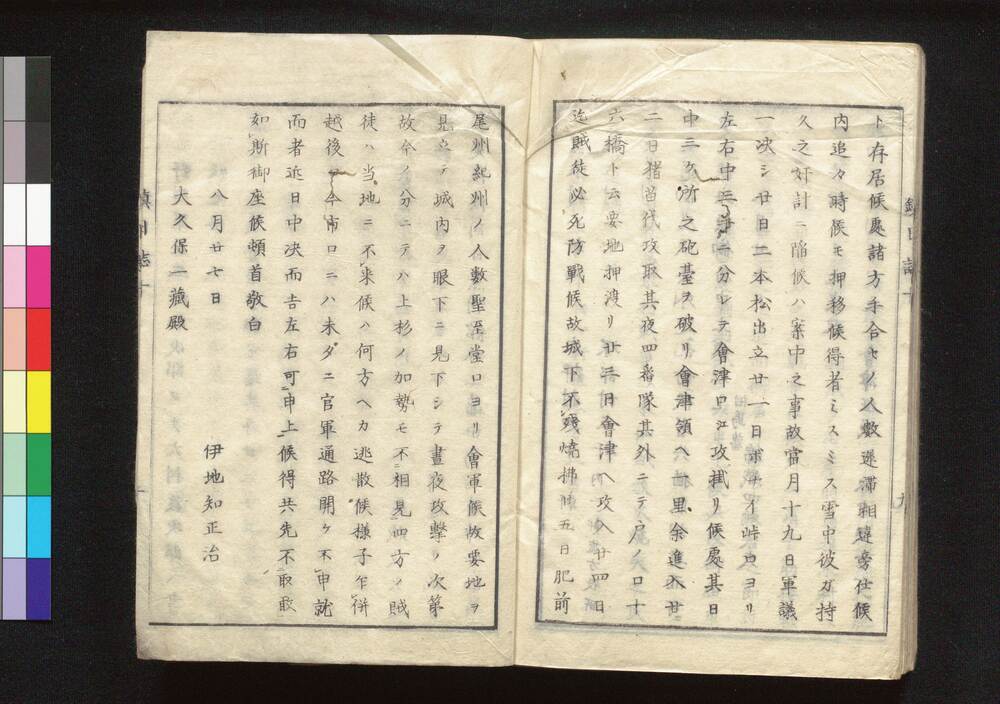 ト存居候處諸方手合セノ人數遲滞相違旁仕候
内追々時候モ押移候得者ミス〱ミス雪中彼カ持
久之奸計ニ陥候ハ案中之事故當月十九日軍議
一决シ廿日二本松出立廿一日ホナイ峠口ヨリ
左右中三手ニ分レテ會津口江攻掛リ候處其日
中三ケ所之砲臺ヲ破リ會津領ヘ七里余進入廿
二日猪苗代攻取其夜四番隊其外ニテ戸ノ口之十
六橋ト云要地押渡リ廿三日會津ヘ攻入廿四日
迄賊徒必死防戰候故城下不残燒拂候五日肥前
尾州紀州ノ人數聖至堂口ヨリ會軍候故要地ヲ
見立テ城内ヲ眼下ニ見下シテ晝夜攻擊ノ次第
故今ノ分ニテハ上杉ノ加勢モ不相見四方ノ賊
徒ハ当地ニ不来候ハ何方ヘカ逃散候様子乍併
越後ロ今市口ニハ未タニ官軍通路開ケ不申就
而者近日中决而吉左右可申上候得共先不取敢
如斯御座候頓首敬白
八月廿七日
伊地知正治
大久保一藏殿